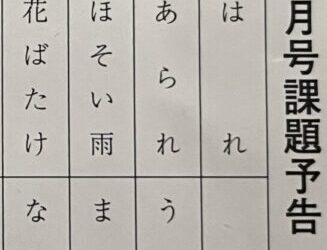 月号課題予告
はれ
あられ
う
ほそい雨
ま
花ばたけ
な